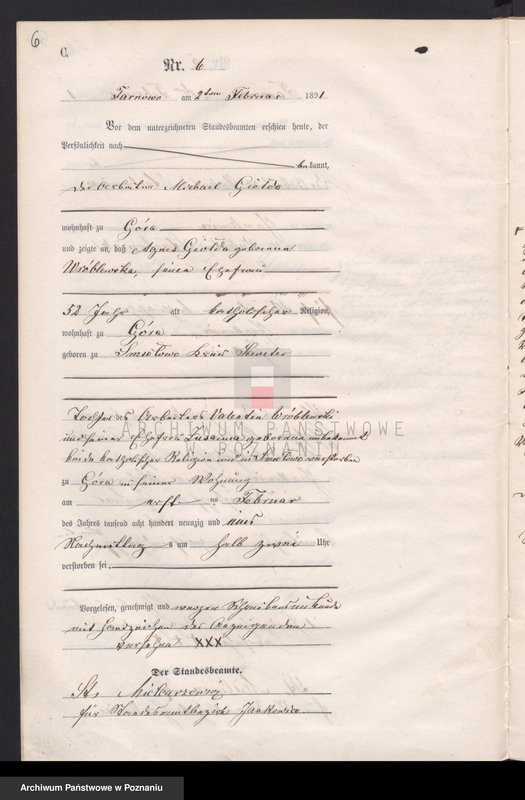 6
C.
Nr. 6
Tarnowo am 2ten Februar 1891
Vor dem unterzeichneten Standesbeamten erschien heute, der
Persönlichkeit nach
bekannt,
der Arbeiter Michael Giołda
wohnhaft zu Góra
und zeigte an, daß Agnes Giołda geborene
Wróblewska, seine Ehefrau
52 Jahr alt katholischer Religion,
wohnhaft zu Góra
geboren zu Smiełowo Kreis
Tochter des Arbeiters Valentin Wróblewski
und seiner Ehefrau Zusanna geborene unbekannt
beide katholischer Religion und in Smiełowo verstorben
zu Góra in seiner Wohnung
am erst ten Februar
des Jahres tausend acht hundert neunzig und eins
Nachmittag s um halb zwei Uhr
verstorben sei.
Vorgelesen, genehmigt und wegen Schreibensunkunde
mit Handzeichen des Anzeigenden
versehen XXX
Der Standesbeamte.
St.
für Standesamtbezirk Jankowice.
ARCHIWUM PAŃSTWOWE
W POZNANIU
Archiwum Państwowe w Poznaniu